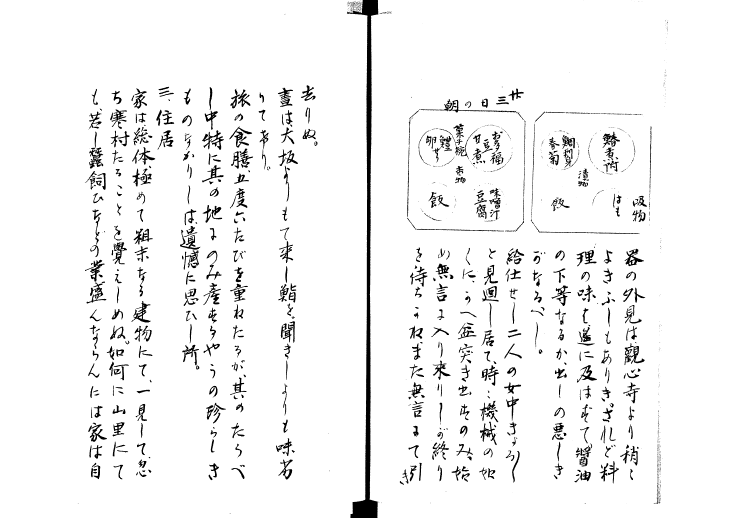 吸物
はも
鰆煮付
漬物
鯛刺身
春菊
飯
廿三日の朝
味噌汁
豆腐
お多福
豆
甘煮
菓子椀
香物
鰹
卵せ
飯
器の外見は觀心寺より稍々
よきふしもありき。されど料
理の味は遙に及はずて醤油
の下等なるか、出しの悪しき
がなるべし。
給仕せし二人の女中きよろ〱
と見廻し居て、時々機械の如
くに、うへ盆突き出すのみ、始
め無言に入り來りしが終り
を待ちかねまた無言にて引き
去りぬ。
晝は、大坂よりもて来し鮨を、聞きしよりも味劣
りてあり。
旅の食膳、五度六たびを重ねたるが、其のたうべ
し中特に其の地にのみ産するやうの珍らしき
ものなかりしは遺憾に思ひし所。
三、住居
家は総体極めて粗末なる建物にて、一見して、忽
ち寒村たることを覺えしめぬ。如何に山里にて
も、若し蠶飼ひなどの業盛んならんには家は自